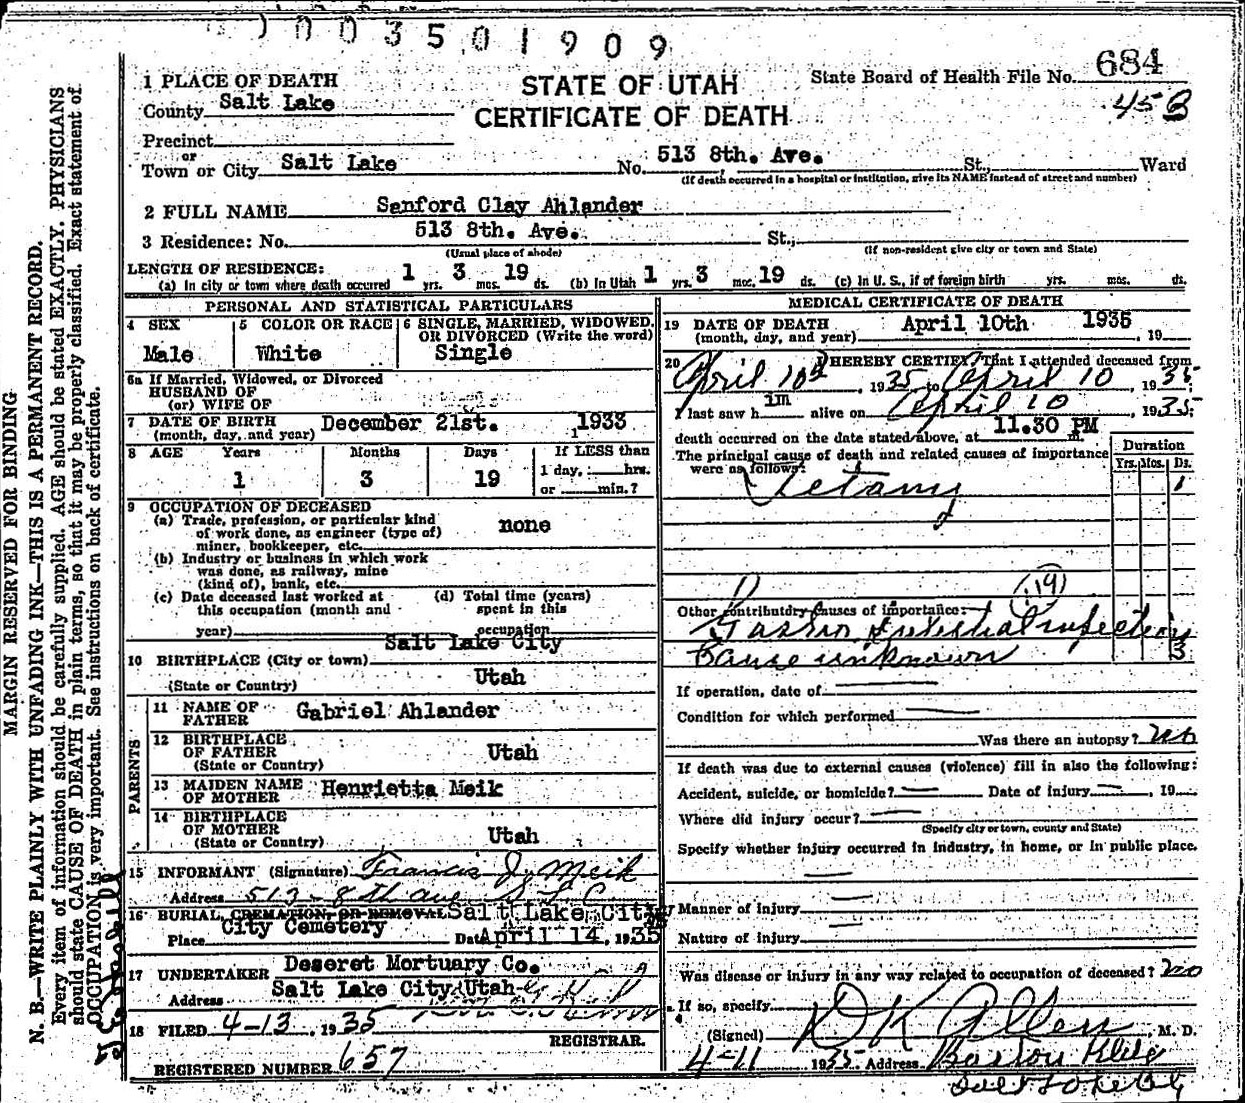 003501909
1 PLACE OF DEATH
STATE OF UTAH
State Board of Health File No. 684
County Salt Lake
CERTIFICATE OF DEATH
45 B
Precinct
or
Town or City Salt Lake No. 513 8th. Ave. St., Ward
(If death occurred in a hospital or institution, give its NAME instead of street and number)
2 FULL NAME Sanford Clay Ahlander
3 Residence: No. 513 8th. Ave. St.,
(Usual place of abode) (If non-resident give city or town and State)
LENGTH OF RESIDENCE:
(a) In city or town where death occurred 1 yrs. 3 mos. 19 ds. (b) In Utah 1 yrs. 3 mos. 19 ds. (c) In U. S., if of foreign birth yrs. mos. ds.
PERSONAL AND STATISTICAL PARTICULARS
4 SEX Male
5 COLOR OR RACE White
6 SINGLE, MARRIED, WIDOWED, OR DIVORCED (Write the word) Single
6a If Married, Widowed, or Divorced
HUSBAND OF
(or) WIFE OF
7 DATE OF BIRTH December 21st. 1933
(month, day, and year)
8 AGE Years Months Days If LESS than
1 3 19 1 day, hrs.
or min.?
9 OCCUPATION OF DECEASED
(a) Trade, profession, or particular kind
of work done, as engineer (type of) none
miner, bookkeeper, etc.
(b) Industry or business in which work
was done, as railway, mine
(kind of), bank, etc.
(c) Date deceased last worked at (d) Total time (years)
this occupation (month and spent in this
year) occupation
Salt Lake City
10 BIRTHPLACE (City or town)
(State or Country) Utah
PARENTS
11 NAME OF FATHER Gabriel Ahlander
12 BIRTHPLACE OF FATHER
(State or Country) Utah
13 MAIDEN NAME OF MOTHER Henrietta Meik
14 BIRTHPLACE OF MOTHER
(State or Country) Utah
15 INFORMANT (Signature) Francis J. Meik
Address 513 - 8th ave S L C
16 BURIAL, CREMATION, OR REMOVAL Salt Lake City
Place City Cemetery Date April 14, 1935
17 UNDERTAKER Deseret Mortuary Co.
Address Salt Lake City Utah
18 FILED 4-13, 1935
REGISTRAR.
REGISTERED NUMBER 657
MEDICAL CERTIFICATE OF DEATH
19 DATE OF DEATH April 10th 1935
(month, day, and year) , 19
20 I HEREBY CERTIFY, That I attended deceased from
April 10th, 1935 to April 10, 1935
I last saw him alive on April 10, 1935;
death occurred on the date stated above, at 11.30 PM m.
The principal cause of death and related causes of importance
were as follows:
Duration
Yrs. Mos. Ds.
Tetany 1
(119)
Other contributory causes of importance:
Gastro intestinal infection
Cause unknown 3
If operation, date of
Condition for which performed
Was there an autopsy? no
If death was due to external causes (violence) fill in also the following:
Accident, suicide, or homicide? Date of injury , 19
Where did injury occur?
(Specify city or town, county and State)
Specify whether injury occurred in industry, in home, or in public place.
Manner of injury
Nature of injury
Was disease or injury in any way related to occupation of deceased? no
If so, specify
(Signed) D K Allen, M. D.
4-11 1935 Address Boston Bldg
Salt Lake City
MARGIN RESERVED FOR BINDING
N. B.—WRITE PLAINLY WITH UNFADING INK—THIS IS A PERMANENT RECORD.
Every item of information should be carefully supplied. AGE should be stated EXACTLY. PHYSICIANS
should state CAUSE OF DEATH in plain terms, so that it may be properly classified. Exact statement of
OCCUPATION is very important. See instructions on back of certificate.